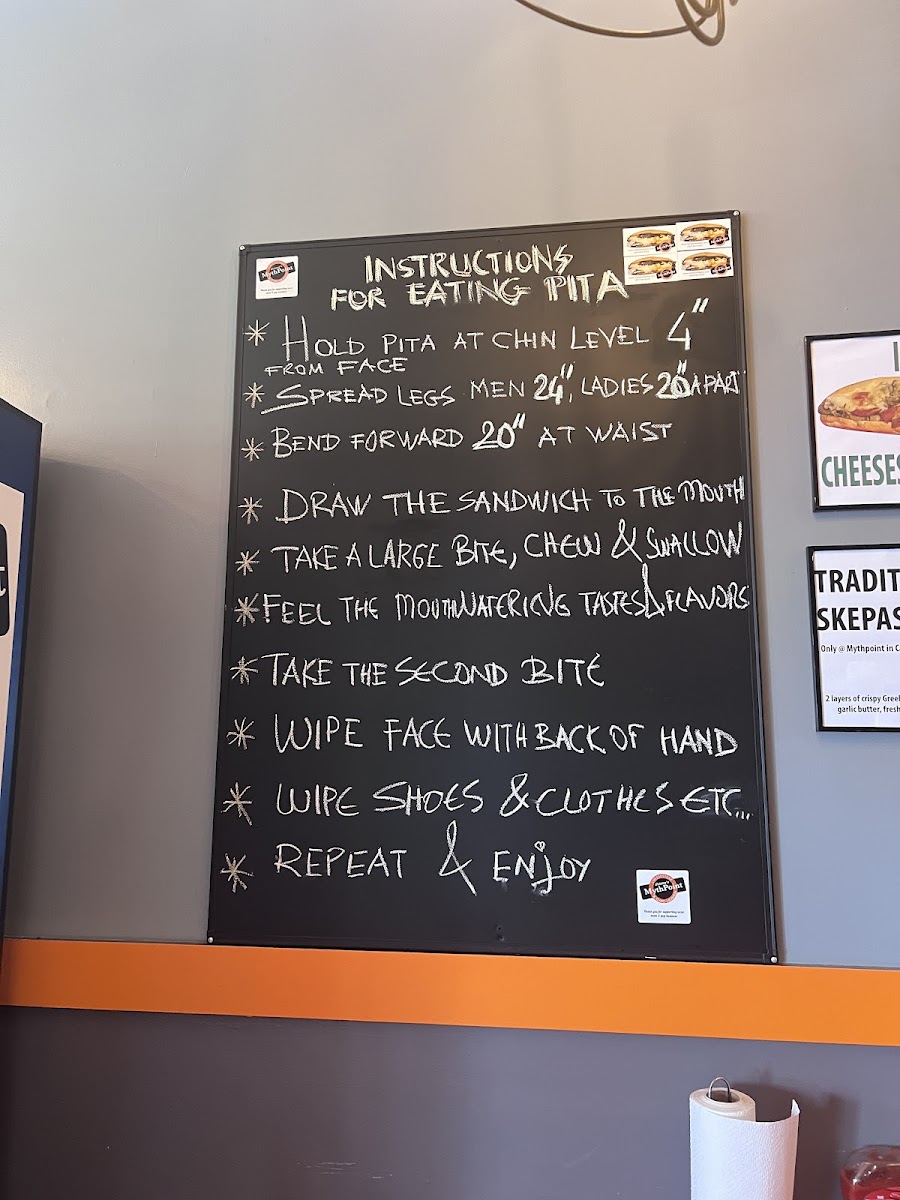 INSTRUCTIONS
FOR EATING PITA
MythPoint
* HOLD PITA AT CHIN LEVEL 4"
FROM FACE
* SPREAD LEGS MEN 24", LADIES 20" APART
* BEND FORWARD 20" AT WAIST
* DRAW THE SANDWICH TO THE MOUTH
* TAKE A LARGE BITE, CHEW & SWALLOW
* FEEL THE MOUTHWATERICNG TASTES & FLAVORS
* TAKE THE SECOND BITE
* WIPE FACE WITH BACK OF HAND
* WIPE SHOES & CLOTHES ETC...
* REPEAT & ENjOY
MythPoint
CHEESES
TRADIT
SKEPAS
Only @ Mythpoint in C
2 layers of crispy Gree
garlic butter, fresh